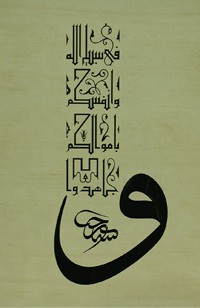 و
جاهدوا
باموالكم
وانفسكم
في سبيل الله